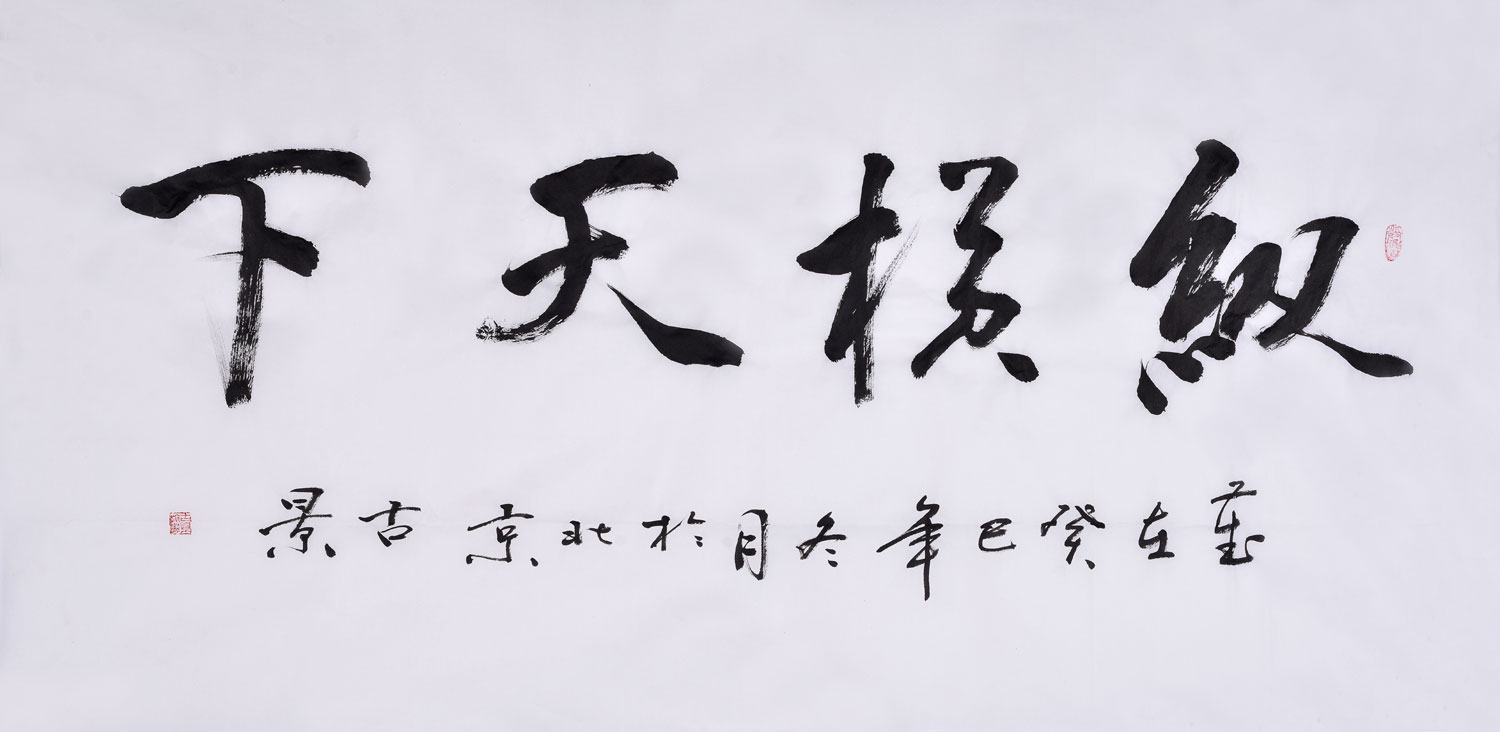 纵横天下
岁在癸巳年冬月於北京古景